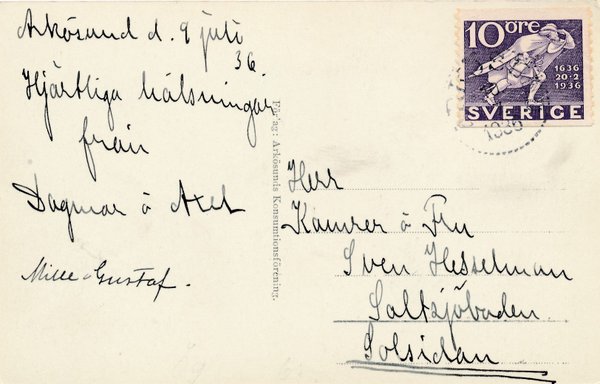 Arkösund d. 9 juli
36.
Hjärtliga hälsningar
från
Dagmar o Axel
Mille o Gustaf.
Förlag: Arkösunds Konsumtionsförening.
10 öre
1636
20·2
1936
SVERIGE
1936
Herr
Kamrer o Fru
Sven Hesselman
Saltsjöbaden
Solsidan